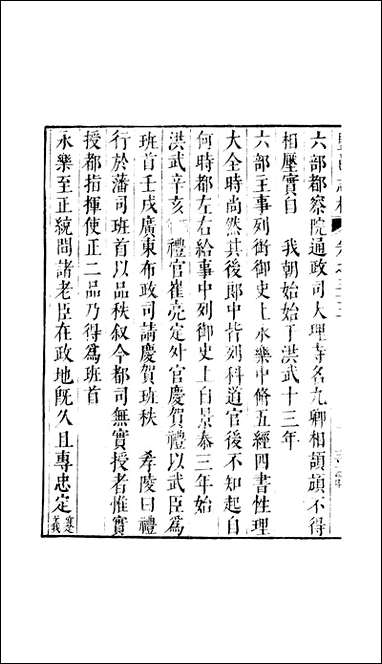 六部都察院通政司大理寺名九卿相頡頏不得
相壓實自　我朝始始于洪武十三年
六部主事列銜御史上永樂中脩五經四書性理
大全時尚然其後郎中皆列科道官後不知起自
何時都左右給事中列御史上自景泰三年始
洪武辛亥　禮官崔亮定外官慶賀禮以武臣爲
班首壬戌廣東布政司請慶賀班秩　孝陵曰禮
行於藩司班首以品秩叙今都司無實授者惟實
授都指揮使正二品乃得爲班首
永樂至正統間諸老臣在政地旣久且專忠定